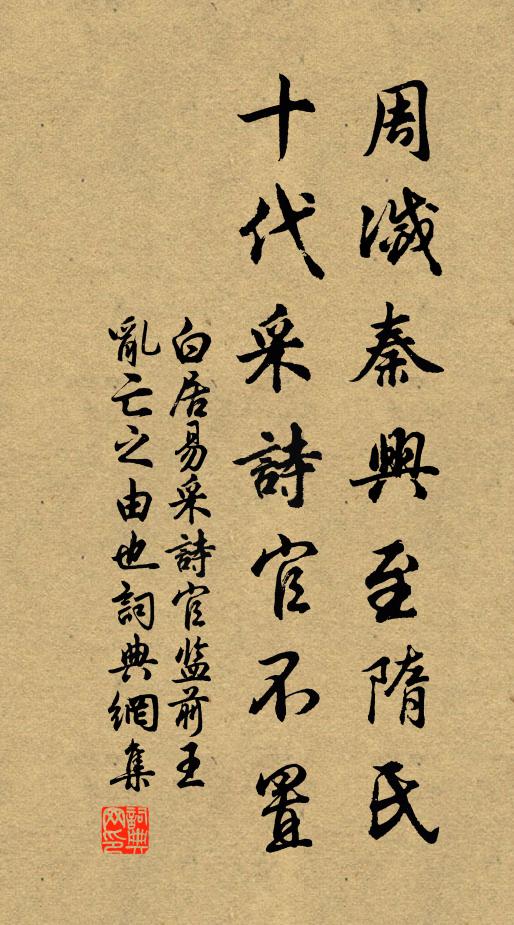 周滅秦興至隋氏
十代采詩官不置
白居易采詩官监前王
亂亡之由也詞典網集
詞典网印